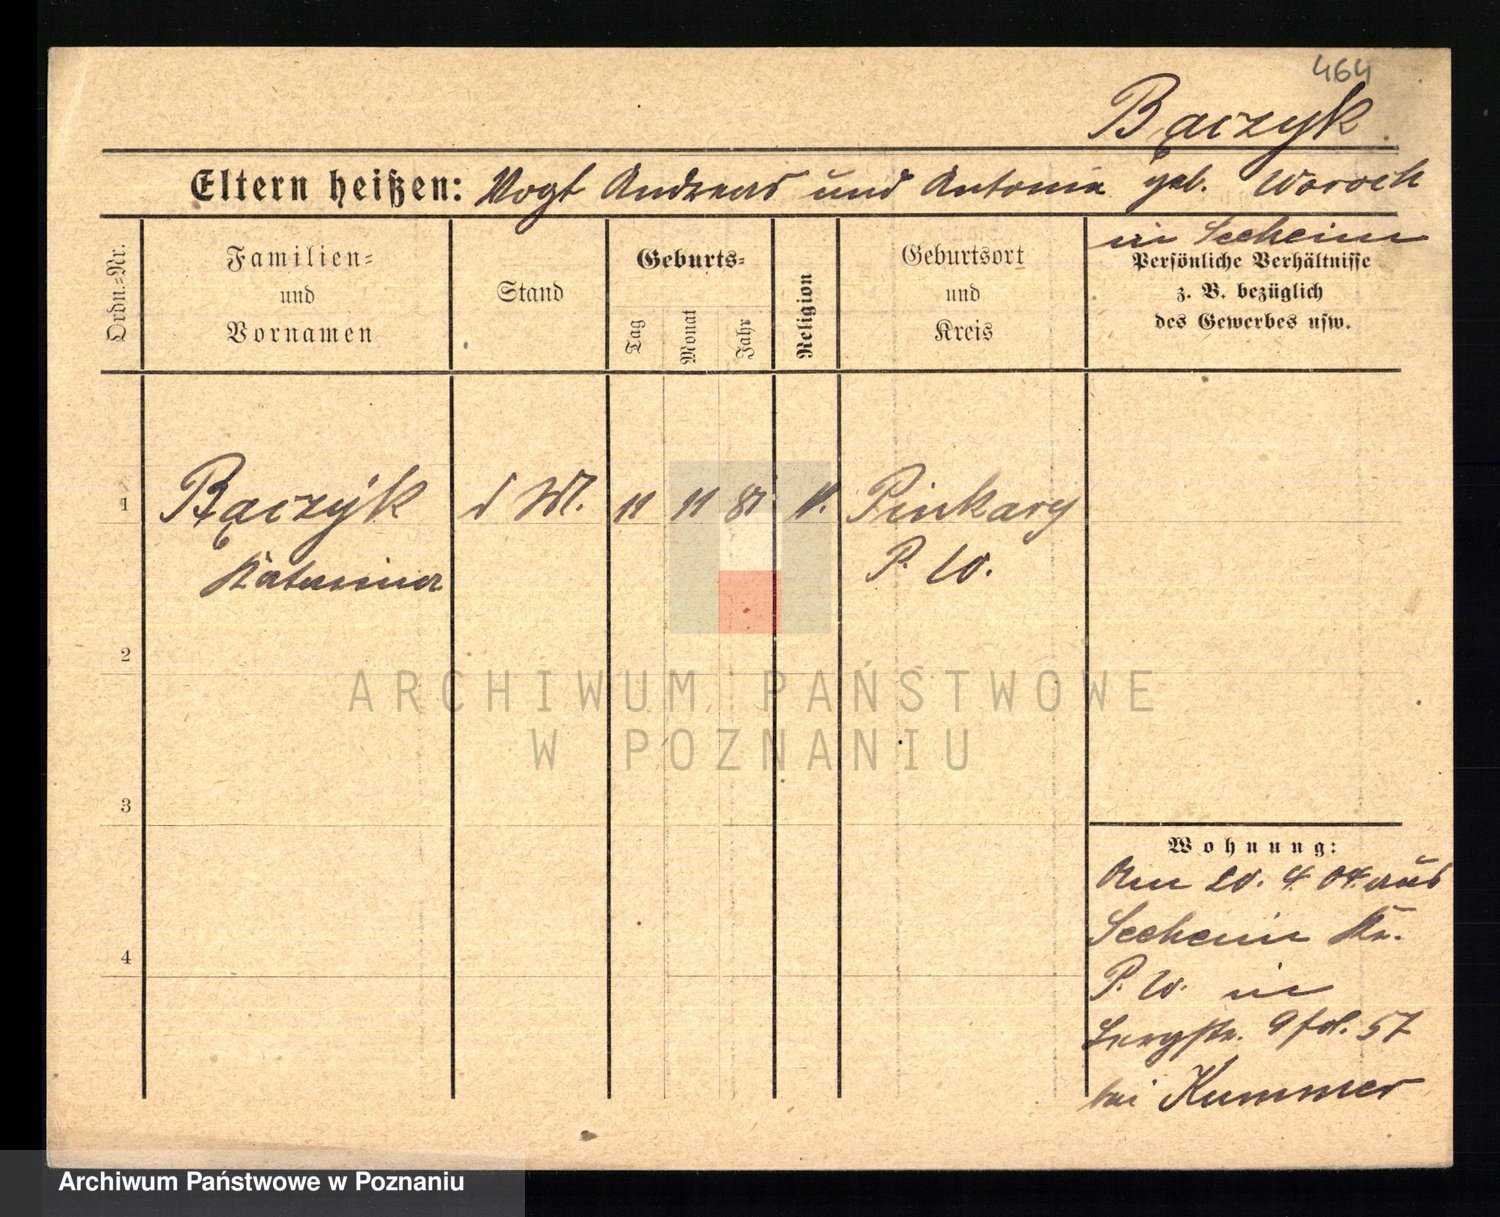 464
Bączyk
Eltern heißen: Vogt Andreas und Antonie geb. Woroch
in Seeheim
Ordn.-Nr.
Familien-
und
Vornamen
Stand
Geburts-
Tag
Monat
Jahr
Religion
Geburtsort
und
Kreis
Persönliche Verhältnisse
z. B. bezüglich
des Gewerbes usw.
1 Bączyk d M. 11 11 81 k. Pinkary
Katarina P. W.
2
3
4
Wohnung:
Am 20. 4. 04. aus
Seeheim Kr.
P. W. in
9 fol. 57
bei Kummer
ARCHIWUM PAŃSTWOWE
W POZNANIU
Archiwum Państwowe w Poznaniu